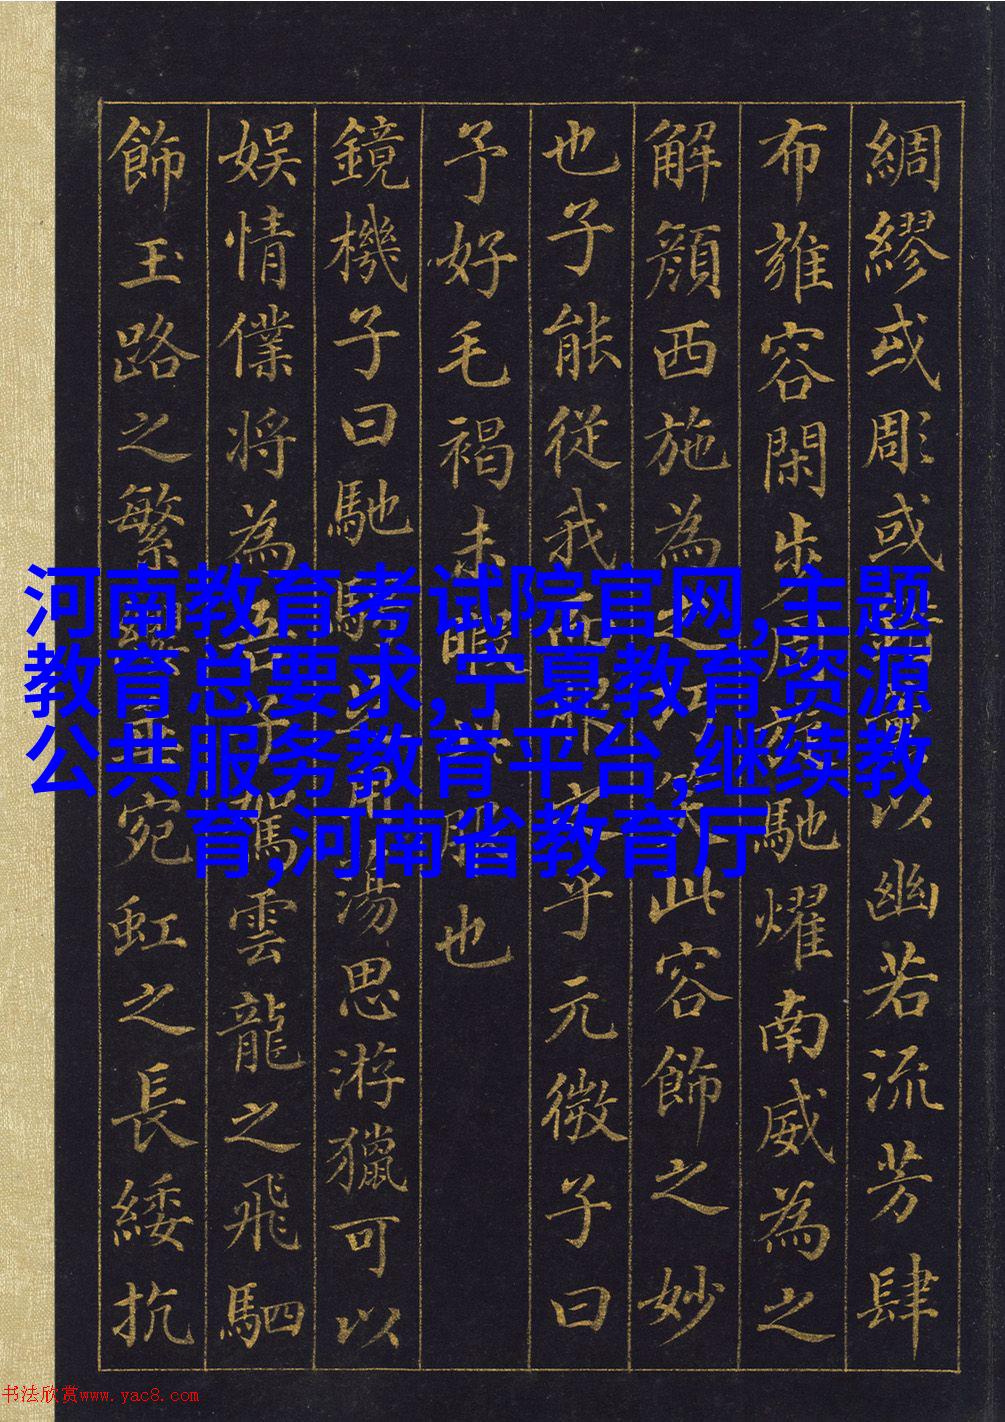 綢繆或彫或錯以幽若流芳肆
布雍容閑步周旋馳耀南威為之
解顏西施為之巧笑此容飾之妙
也子能從我而服之乎元微子曰
予好毛褐未暇此服也
鏡機子曰馳騁足用蕩思游獵可以
娛情僕將為吾子駕雲龍之飛駟
飾玉路之繁纓垂宛虹之長綏抗
河南教育考试院官网,主题
教育总要求,宁夏教育资源
公共服务教育平台,继续教
育,河南省教育厅
书法欣赏www.yac8.com